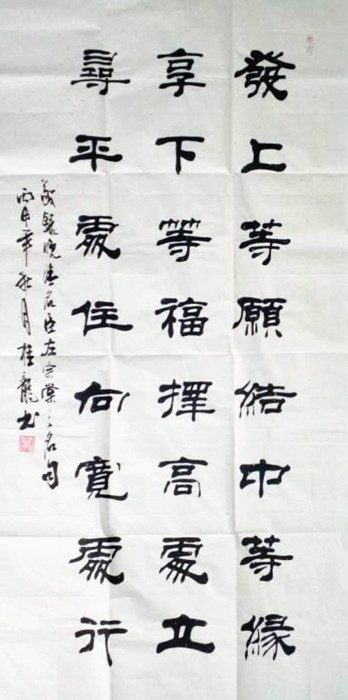 發上等願結中等緣
享下等福擇高處立
尋平處住向寬處行
敬錄晚清名臣左宗棠之名句
丙申年秋月桂龍书